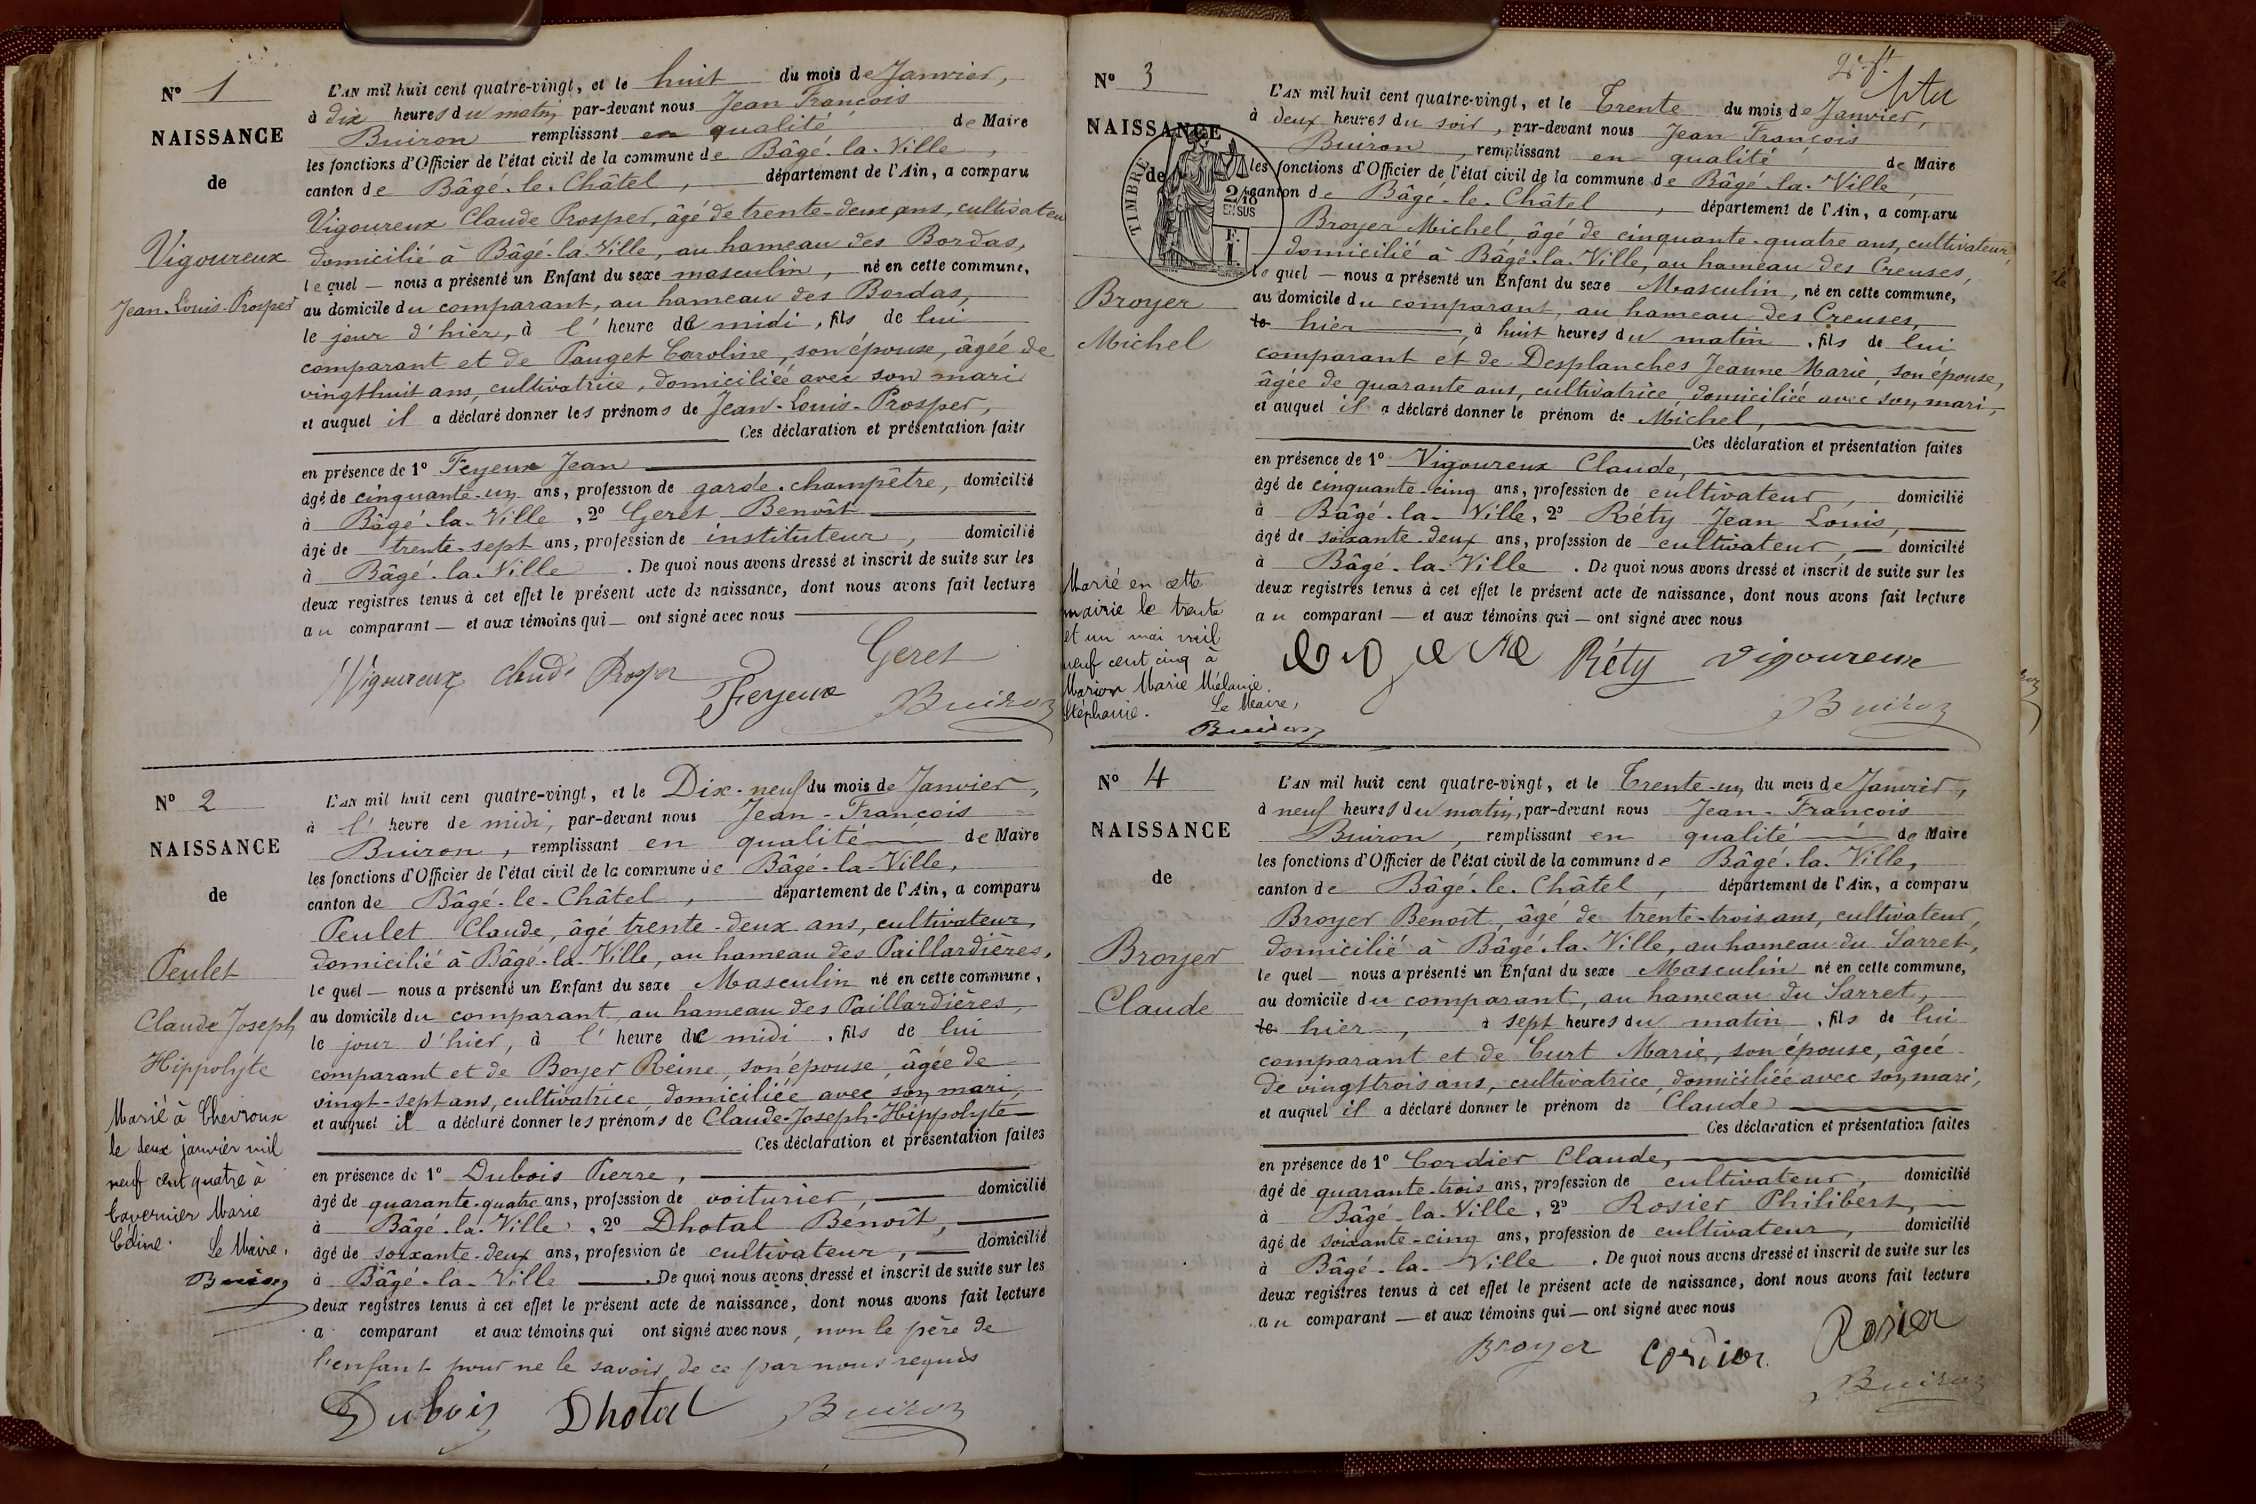 N° 1
NAISSANCE
de
Vigoureux
Jean-Louis-Prosper
L'AN mil huit cent quatre-vingt, et le huit du mois de Janvier,
à dix heures du matin, par-devant nous Jean François
Buiron remplissant en qualité de Maire
les fonctions d'Officier de l'état civil de la commune de Bâgé-la-Ville,
canton de Bâgé-le-Châtel, département de l'Ain, a comparu
Vigoureux Claude Prosper, âgé de trente-deux ans, cultivateur
domicilié à Bâgé-la-Ville, au hameau des Bordas,
lequel — nous a présenté un Enfant du sexe masculin, né en cette commune,
au domicile du comparant, au hameau des Bordas,
le jour d'hier, à l'heure de midi, fils de lui
comparant et de Pauget Caroline, son épouse, âgée de
vingt huit ans, cultivatrice, domiciliée avec son mari
et auquel il a déclaré donner les prénoms de Jean-Louis-Prosper,
Ces déclaration et présentation faites
en présence de 1° Feyeux Jean
âgé de cinquante-un ans, profession de garde-champêtre, domicilié
à Bâgé-la-Ville, 2° Geret Benoît
âgé de trente-sept ans, profession de instituteur, domicilié
à Bâgé-la-Ville. De quoi nous avons dressé et inscrit de suite sur les
deux registres tenus à cet effet le présent acte de naissance, dont nous avons fait lecture
au comparant — et aux témoins qui — ont signé avec nous
Vigoureux Claude Prosper Feyeux Geret Buiron
N° 2
NAISSANCE
de
Peulet
Claude Joseph
Hippolyte
Marié à Chevroux
le deux janvier mil
neuf cent quatre à
Cavernier Marie
Céline. Le Maire,
Buiron
L'AN mil huit cent quatre-vingt, et le Dix-neuf du mois de Janvier,
à l'heure de midi, par-devant nous Jean-François
Buiron, remplissant en qualité de Maire
les fonctions d'Officier de l'état civil de la commune de Bâgé-la-Ville,
canton de Bâgé-le-Châtel, département de l'Ain, a comparu
Peulet Claude, âgé trente-deux ans, cultivateur
domicilié à Bâgé-la-Ville, au hameau des Paillardières,
lequel — nous a présenté un Enfant du sexe Masculin né en cette commune,
au domicile du comparant, au hameau des Paillardières,
le jour d'hier, à l'heure de midi, fils de lui
comparant et de Boyer Reine, son épouse, âgée de
vingt-sept ans, cultivatrice, domiciliée avec son mari,
et auquel il a déclaré donner les prénoms de Claude-Joseph-Hippolyte
Ces déclaration et présentation faites
en présence de 1° Dubois Pierre,
âgé de quarante-quatre ans, profession de voiturier, domicilié
à Bâgé-la-Ville, 2° Dhotal Benoît,
âgé de soixante-deux ans, profession de cultivateur, domicilié
à Bâgé-la-Ville. De quoi nous avons dressé et inscrit de suite sur les
deux registres tenus à cet effet le présent acte de naissance, dont nous avons fait lecture
a comparant et aux témoins qui ont signé avec nous, non le père de
l'enfant pour ne le savoir de ce par nous requis
Dubois Dhotal Buiron
N° 3
NAISSANCE
de
TIMBRE
2/10
EN SUS
Broyer
Michel
Marié en cette
mairie le trente
et un mai mil
neuf cent cinq à
Marion Marie Mélanie
Stéphanie. Le Maire,
Buiron
L'AN mil huit cent quatre-vingt, et le Trente du mois de Janvier,
à deux heures du soir, par-devant nous Jean François
Buiron, remplissant en qualité de Maire
les fonctions d'Officier de l'état civil de la commune de Bâgé-la-Ville
canton de Bâgé-le-Châtel, département de l'Ain, a comparu
Broyer Michel, âgé de cinquante-quatre ans, cultivateur,
domicilié à Bâgé-la-Ville, au hameau des Creuses,
lequel — nous a présenté un Enfant du sexe Masculin, né en cette commune,
au domicile du comparant, au hameau des Creuses,
le hier, à huit heures du matin, fils de lui
comparant et de Desplanches Jeanne Marie, son épouse,
âgée de quarante ans, cultivatrice, domiciliée avec son mari,
et auquel il a déclaré donner le prénom de Michel,
Ces déclaration et présentation faites
en présence de 1° Vigoureux Claude,
âgé de cinquante-cinq ans, profession de cultivateur, domicilié
à Bâgé-la-Ville, 2° Réty Jean Louis,
âgé de soixante-deux ans, profession de cultivateur, domicilié
à Bâgé-la-Ville. De quoi nous avons dressé et inscrit de suite sur les
deux registres tenus à cet effet le présent acte de naissance, dont nous avons fait lecture
au comparant — et aux témoins qui — ont signé avec nous
Réty Vigoureux
Buiron
N° 4
NAISSANCE
de
Broyer
Claude
L'AN mil huit cent quatre-vingt, et le Trente-un du mois de Janvier,
à neuf heures du matin, par-devant nous Jean-François
Buiron, remplissant en qualité de Maire
les fonctions d'Officier de l'état civil de la commune de Bâgé-la-Ville,
canton de Bâgé-le-Châtel, département de l'Ain, a comparu
Broyer Benoît, âgé de trente-trois ans, cultivateur,
domicilié à Bâgé-la-Ville, au hameau du Sarret,
lequel — nous a présenté un Enfant du sexe Masculin né en cette commune,
au domicile du comparant, au hameau du Sarret,
le hier, à sept heures du matin, fils de lui
comparant et de Curt Marie, son épouse, âgée
de vingt trois ans, cultivatrice, domiciliée avec son mari,
et auquel il a déclaré donner le prénom de Claude
Ces déclaration et présentation faites
en présence de 1° Cordier Claude,
âgé de quarante-trois ans, profession de cultivateur, domicilié
à Bâgé-la-Ville, 2° Rosier Philibert,
âgé de soixante-cinq ans, profession de cultivateur, domicilié
à Bâgé-la-Ville. De quoi nous avons dressé et inscrit de suite sur les
deux registres tenus à cet effet le présent acte de naissance, dont nous avons fait lecture
au comparant — et aux témoins qui — ont signé avec nous
Broyer Cordier Rosier
Buiron